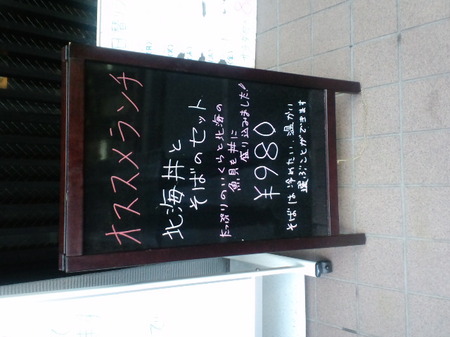 オススメランチ
北海丼と
そばのセット
たっぷりのいくらと北海の
魚貝を丼に
盛り込みました!
¥980
そばは冷めたい、温かい
選ぶことができます